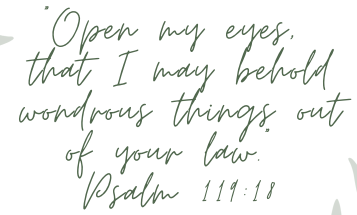 "Open my eyes,
that I may behold
wondrous things out
of your law."
Psalm 119:18